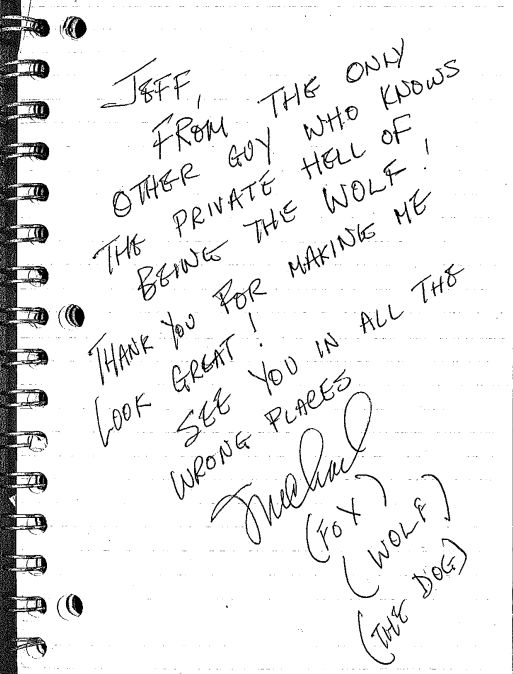 JEFF,
FROM THE ONLY
OTHER GUY WHO KNOWS
THE PRIVATE HELL OF
BEING THE WOLF!
THANK YOU FOR MAKING ME
LOOK GREAT!
SEE YOU IN ALL THE
WRONG PLACES
Michael
(FOX)
(WOLF)
(THE DOG)